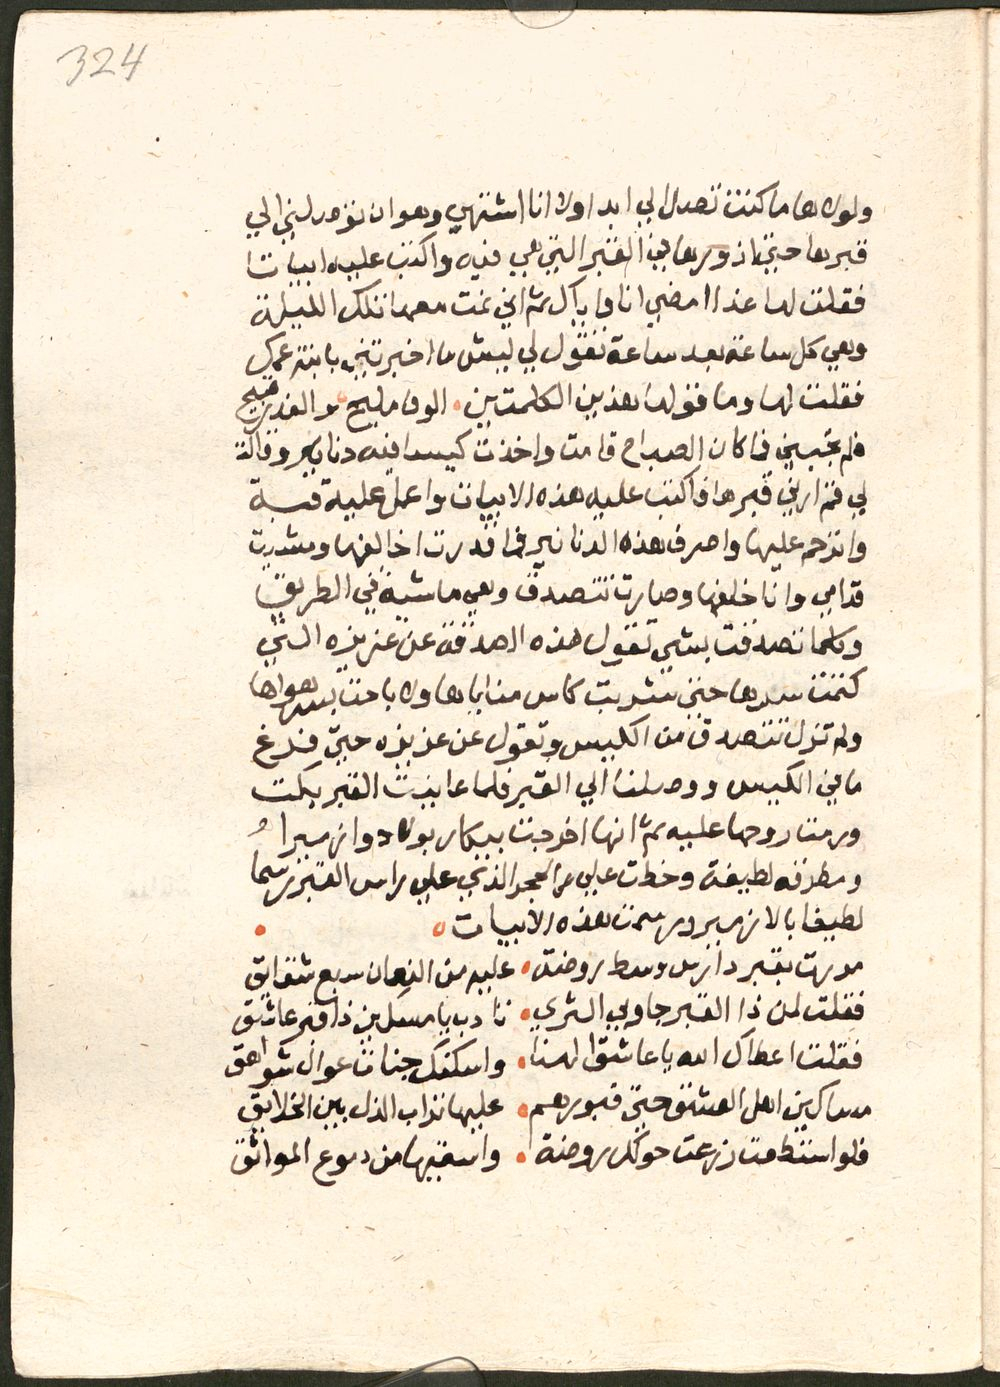 324
ولولاها ما كنت تصل الي ابدا ولا انا اشتهي وهو ان توصلني الي
قبرها حتي ازورها في القبر التي هي فيه واكتب عليه ابياتا
فقلت لها غدا امضي انا واياكي ثم اني نمت معها تلك الليلة
وهي كل ساعة بعد ساعة تقول لي ليش ما اخبرتني بابنة عمك
فقلت لها وما قولها هذين الكلمتين الوفا مليح والغدر قبيح
فلم تجبني فما كان الصباح قامت واخذت كيسا فيه دنانير وقالت
لي قم اريني قبرها فاكتب عليه هذه الابيات واعمل عليه قبة
واترحم عليها واصرف هذه الدنانير فما قدرت اخالفها ومشيت
قدامي وانا خلفها وصارت تتصدق وهي ماشية في الطريق
وكلما تصدقت بشي تقول هذه الصدقة عن عزيزه التي
كتمت سرها حتي شربت كاس مناياها ولا باحت بسر هواها
ولم تزل تتصدق من الكيس وتقول عن عزيزه حتي فرغ
ما في الكيس ووصلنا الي القبر فلما عاينت القبر بكت
ورمت روحها عليه ثم انها اخرجت بيكار بولاد وازميرا
ومطرقه لطيفة وخطت علي الحجر الذي علي راس القبر رسما
لطيفا بالازمير ورسمت هذه الابيات
مررت بقبر دارس وسط روضة عليه من النعمان سبع شقايق
فقلت لمن ذا القبر جاوبي الثري تادب يا مسكين ذا قبر عاشق
فقلت اعطاك الله يا عاشقا لهنا واسكنك جنات عوال شواهق
مساكين اهل العشق حتي قبورهم عليها تراب الذل بين الخلايق
فلو استطعت زرعت حولك روضة واسقيها من دموع المواثق